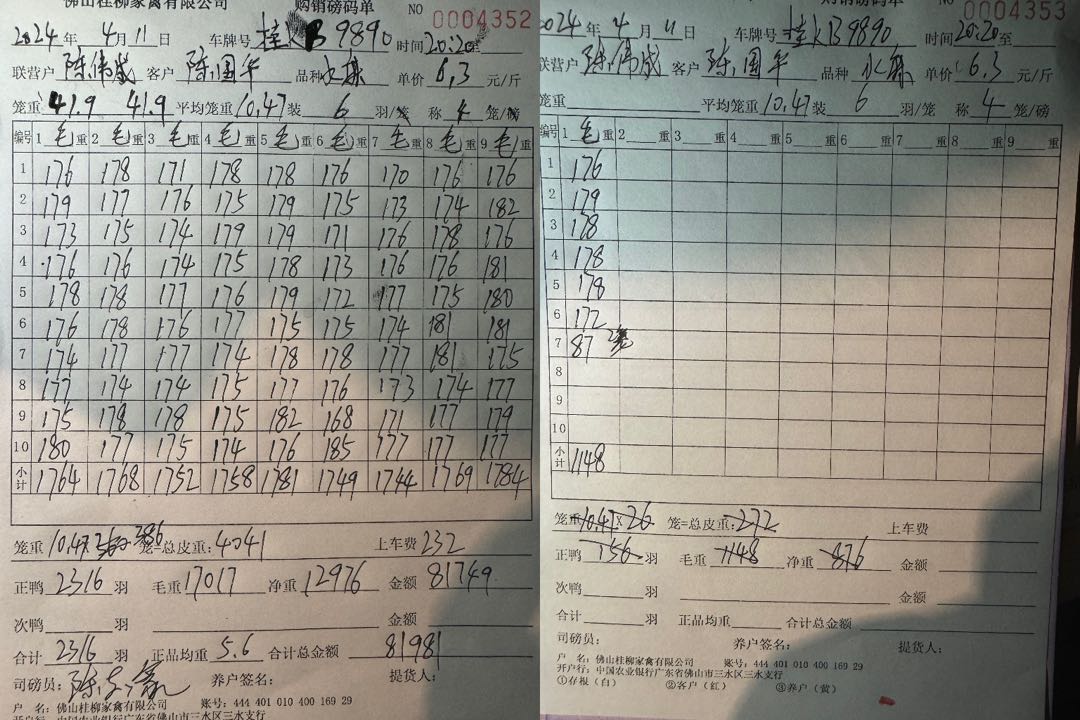 佛山桂柳家禽有限公司 购销磅码单 NO 0004352
2024年 4月11日 车牌号 桂KB9890 时间20:20至
联营户 陈伟成 客户 陈国平 品种 单价6.3元/斤
笼重 41.9 41.9 平均笼重10.47装 6 羽/笼 称 4 笼/磅
编号 1毛重 2毛重 3毛重 4毛重 5毛重 6毛重 7毛重 8毛重 9毛重
1 176 178 171 178 178 176 170 176 176
2 179 177 176 175 179 175 173 174 182
3 173 175 174 179 179 171 176 178 176
4 176 176 174 175 178 173 176 176 181
5 178 178 177 176 179 172 177 175 180
6 176 178 176 177 175 175 174 181 181
7 174 177 177 174 178 178 177 181 175
8 177 174 174 175 177 176 173 174 177
9 175 178 178 175 182 168 171 177 179
10 180 177 175 174 176 185 177 177 177
小计 1764 1768 1752 1758 1781 1749 1744 1769 1784
笼重 10.47x 386 笼=总皮重:4041 上车费 232
正鸭 2316 羽 毛重 17017 净重 12976 金额 81749
次鸭 羽 金额
合计 2316 羽 正品均重 5.6 合计总金额 81981
司磅员: 养户签名: 提货人:
户 名: 佛山桂柳家禽有限公司 账号: 444 401 010 400 169 29
开户行: 中国农业银行广东省佛山市三水区三水支行
购销磅码单 NO 0004353
2024年 4月11日 车牌号 桂KB9890 时间20:20至
联营户 陈伟成 客户 陈国平 品种 单价6.3元/斤
笼重 平均笼重10.47装 6 羽/笼 称 4 笼/磅
编号 1毛重 2 重 3 重 4 重 5 重 6 重 7 重 8 重 9 重
1 176
2 179
3 178
4 178
5 178
6 172
7 87 2笼
8
9
10
小计 1148
笼重 10.47x26 笼=总皮重:272 上车费
正鸭 156 羽 毛重 1148 净重 876 金额
次鸭 羽 金额
合计 羽 正品均重 合计总金额
司磅员: 养户签名: 提货人:
户 名: 佛山桂柳家禽有限公司 账号: 444 401 010 400 169 29
开户行: 中国农业银行广东省佛山市三水区三水支行
①存根（白） ②客户（红） ③养户（黄）